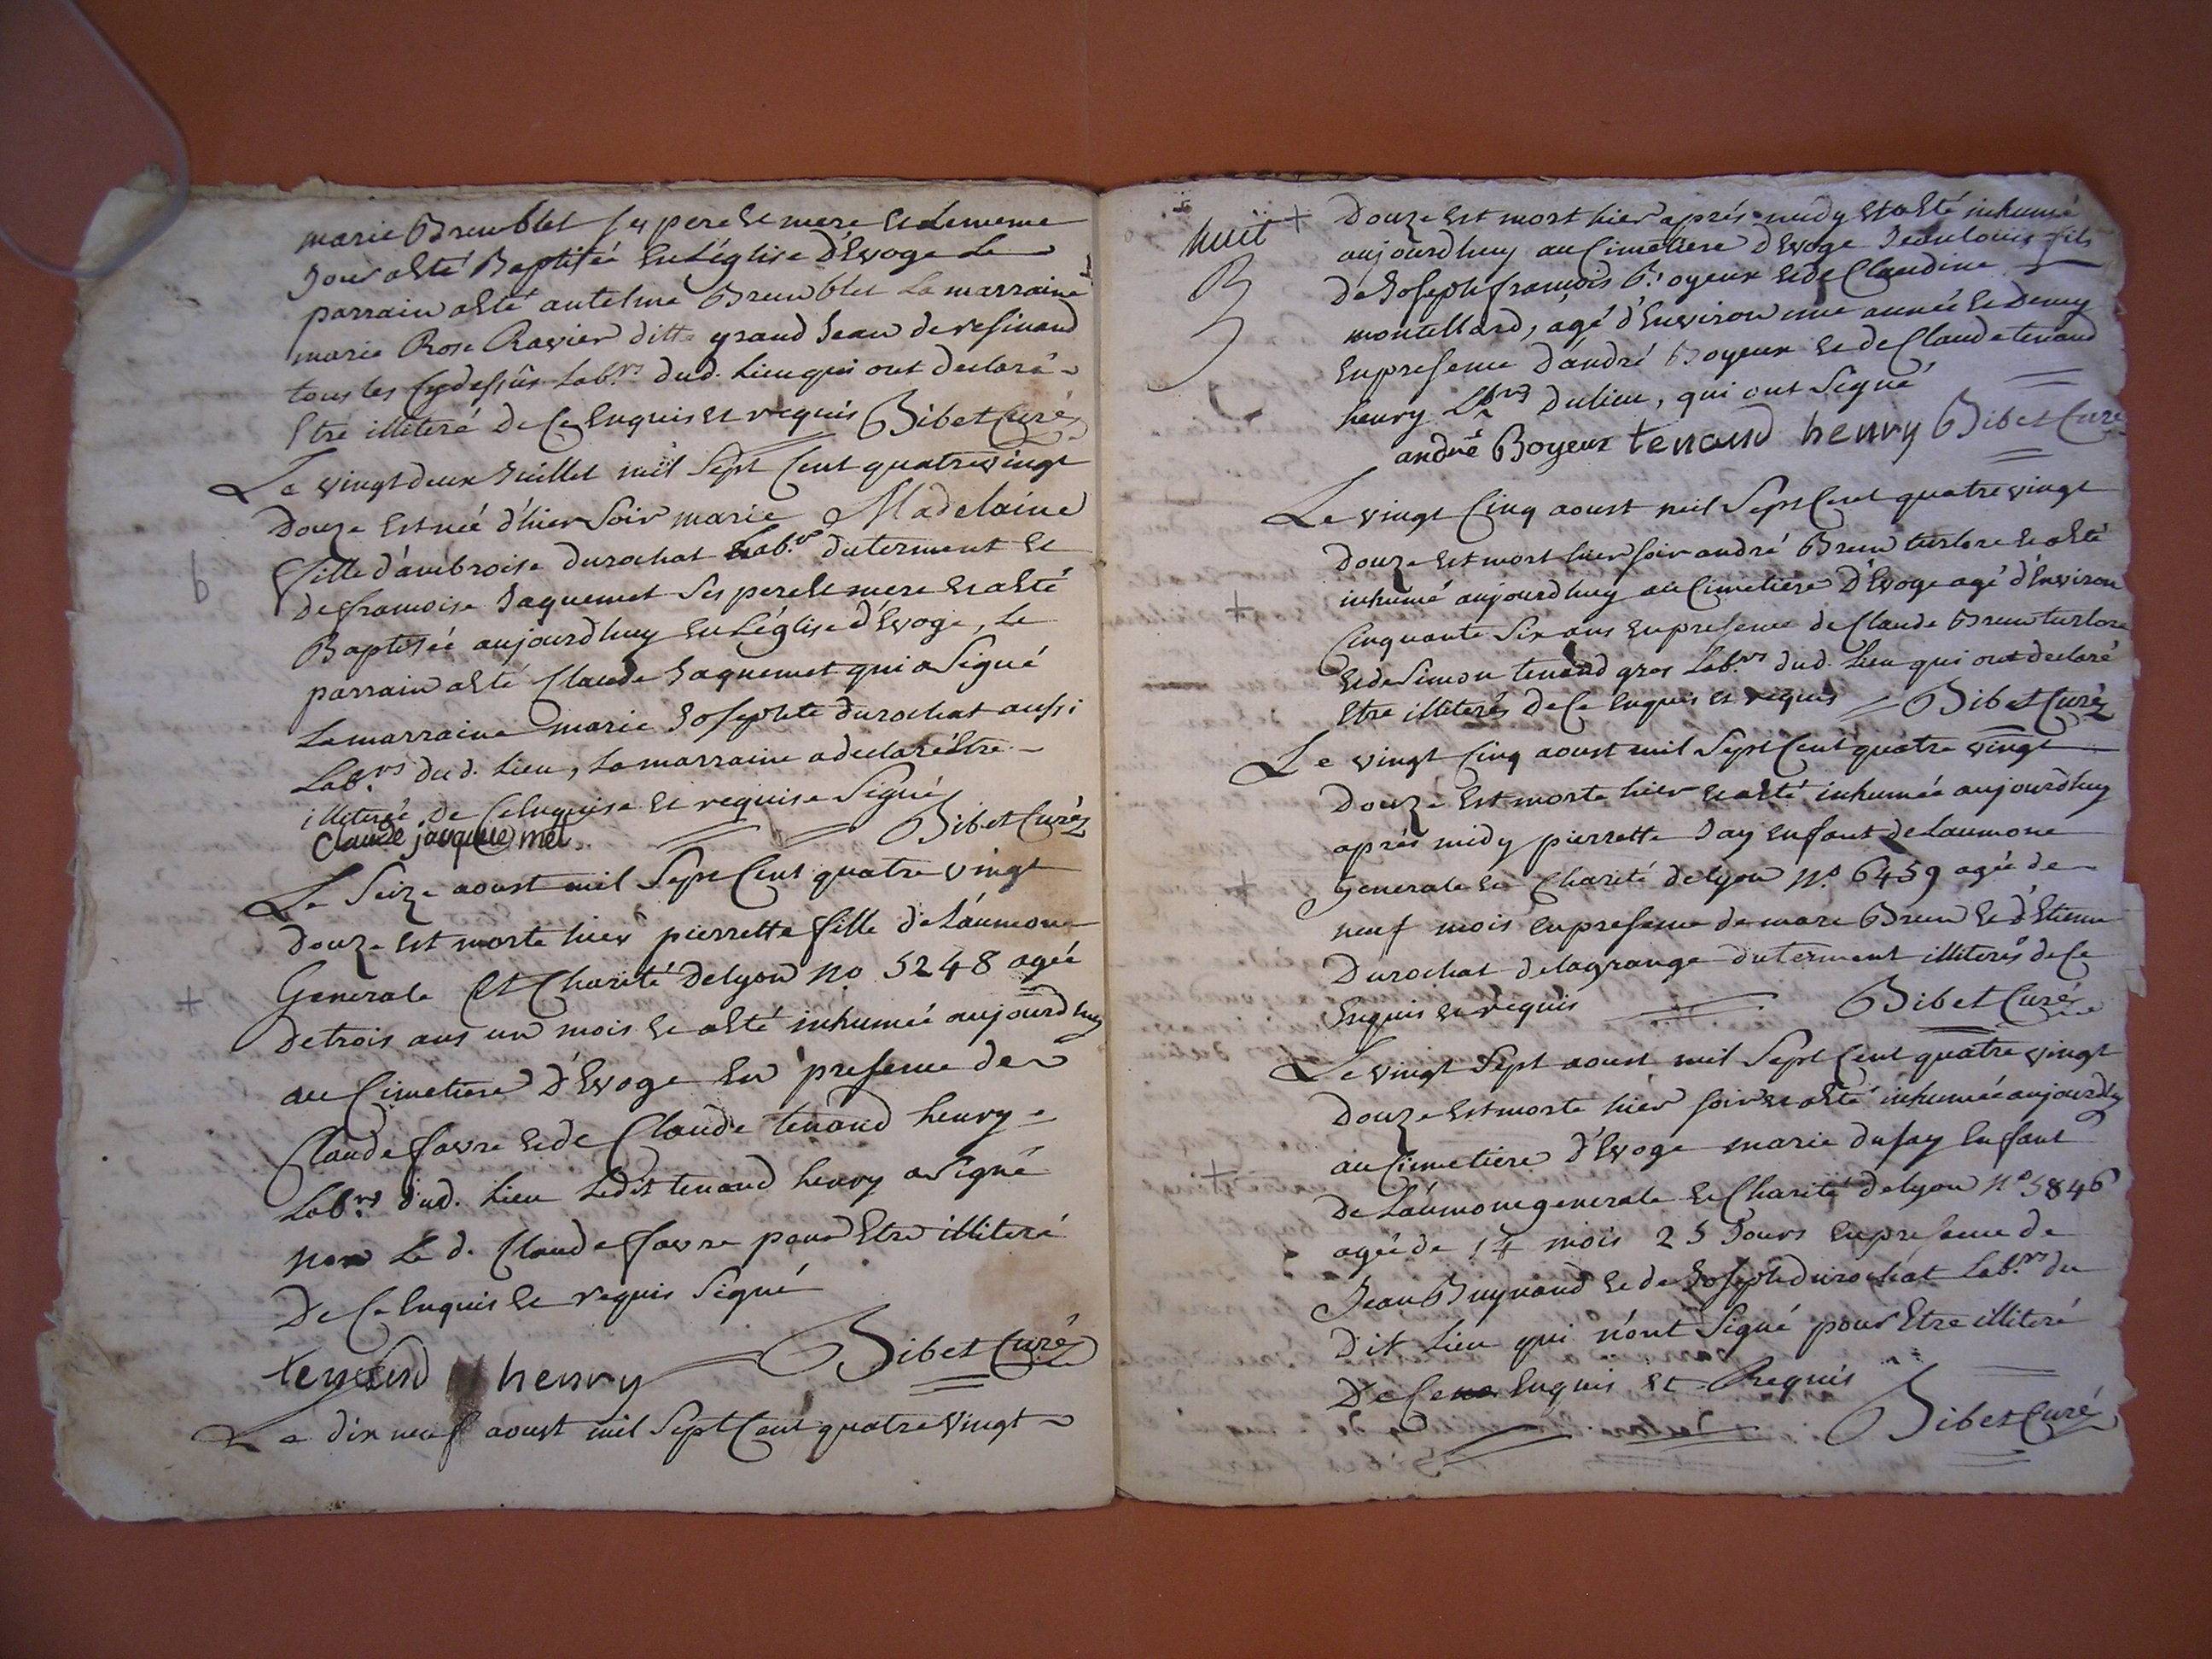 marie Brunblet ses pere et mere et le meme
Jour a esté Baptisée en L'église d'Evoge Le
parrain a esté antelme Brunblet La marraine
marie Rose Ravier ditte grand Jean de resinand
tous les cydessûs Lab.rs dud. Lieu qui ont declaré
Etre illiteré de Ce Enquis et requis Bibet Curé
Le vingt deux Juillet mil Sept Cent quatre vingt
Douze Est née d'hier Soir marie Madelaine
fille d'ambroise durochat Lab.r du terment et
de francoise Jaquemet Ses pere et mere et a esté
Baptisée aujourdhuy en L'église d'Evoge, Le
parrain a esté Claude Jaquemet qui a Signé
La marraine marie Josephte durochat aussi
Lab.rs dud. Lieu, La marraine a declaré être
illiterée de Ce Enquise et requise Signé
claude jaqueme met Bibet Curé
6
Le Seize aoust mil Sept Cent quatre vingt
Douze est morte hier pierrette fille de L'aumone
Generale et Charité de Lyon no 5248 agée
+
de trois ans un mois et a esté inhumée aujourdhuy
au Cimetiere d'Evoge En presence de
Claude favre et de Claude tenand henry
Lab.rs dud. Lieu Ledit tenand henry a Signé
non Le d. Claude favre pour Etre illiteré
De Ce Enquis et requis Signé
tenand henry Bibet Curé
Le dix neuf aoust mil Sept Cent quatre vingt
huit + Douze est mort hier aprés midy et a esté inhumé
aujourdhuy au Cimetiere d'Evoge Jean Louis fils
de Joseph francois Boyeux et de Claudine
montillard, agé d'Environ une année et Demy
En presence d'andré Boyeux et de Claude tenand
henry Lbrs du lieu, qui ont Signé
andré Boyeux tenand henry Bibet Curé
Le vingt Cinq aoust mil Sept Cent quatre vingt
Douze est mort hier soir andré Brun turlore et a esté
+ inhumé aujourdhuy au Cimetiere d'Evoge agé d'Environ
Cinquante Six ans En presence de Claude Brun turlore
et de Simon tenand gros Lab.rs dud. Lieu qui ont declaré
Etre illiterés de Ce Enquis et requis Bibet Curé
Le vingt Cinq aoust mil Sept Cent quatre vingt
Douze Est morte hier et a esté inhumée aujourdhuy
aprés midy pierrette Jay Enfant de Laumone
+ Generale et Charité de Lyon No. 6459 agée de
neuf mois En presence de marc Brun et d'Etienne
Durochat de la grange du terment illiterés de Ce
Enquis et requis Bibet Curé
Le vingt Sept aoust mil Sept Cent quatre vingt
Douze Est morte hier soir et a esté inhumée aujourdhy
+ au Cimetiere d'Evoge marie dufay Enfant
de L'aumone generale et Charité de Lyon No 5846
agée de 14 mois 25 Jours En presence de
Jean Buynand et de Joseph durochat Lab.rs du
dit Lieu qui n'ont Signé pour Etre illiteré
De Ce Enquis et Requis
Bibet Curé